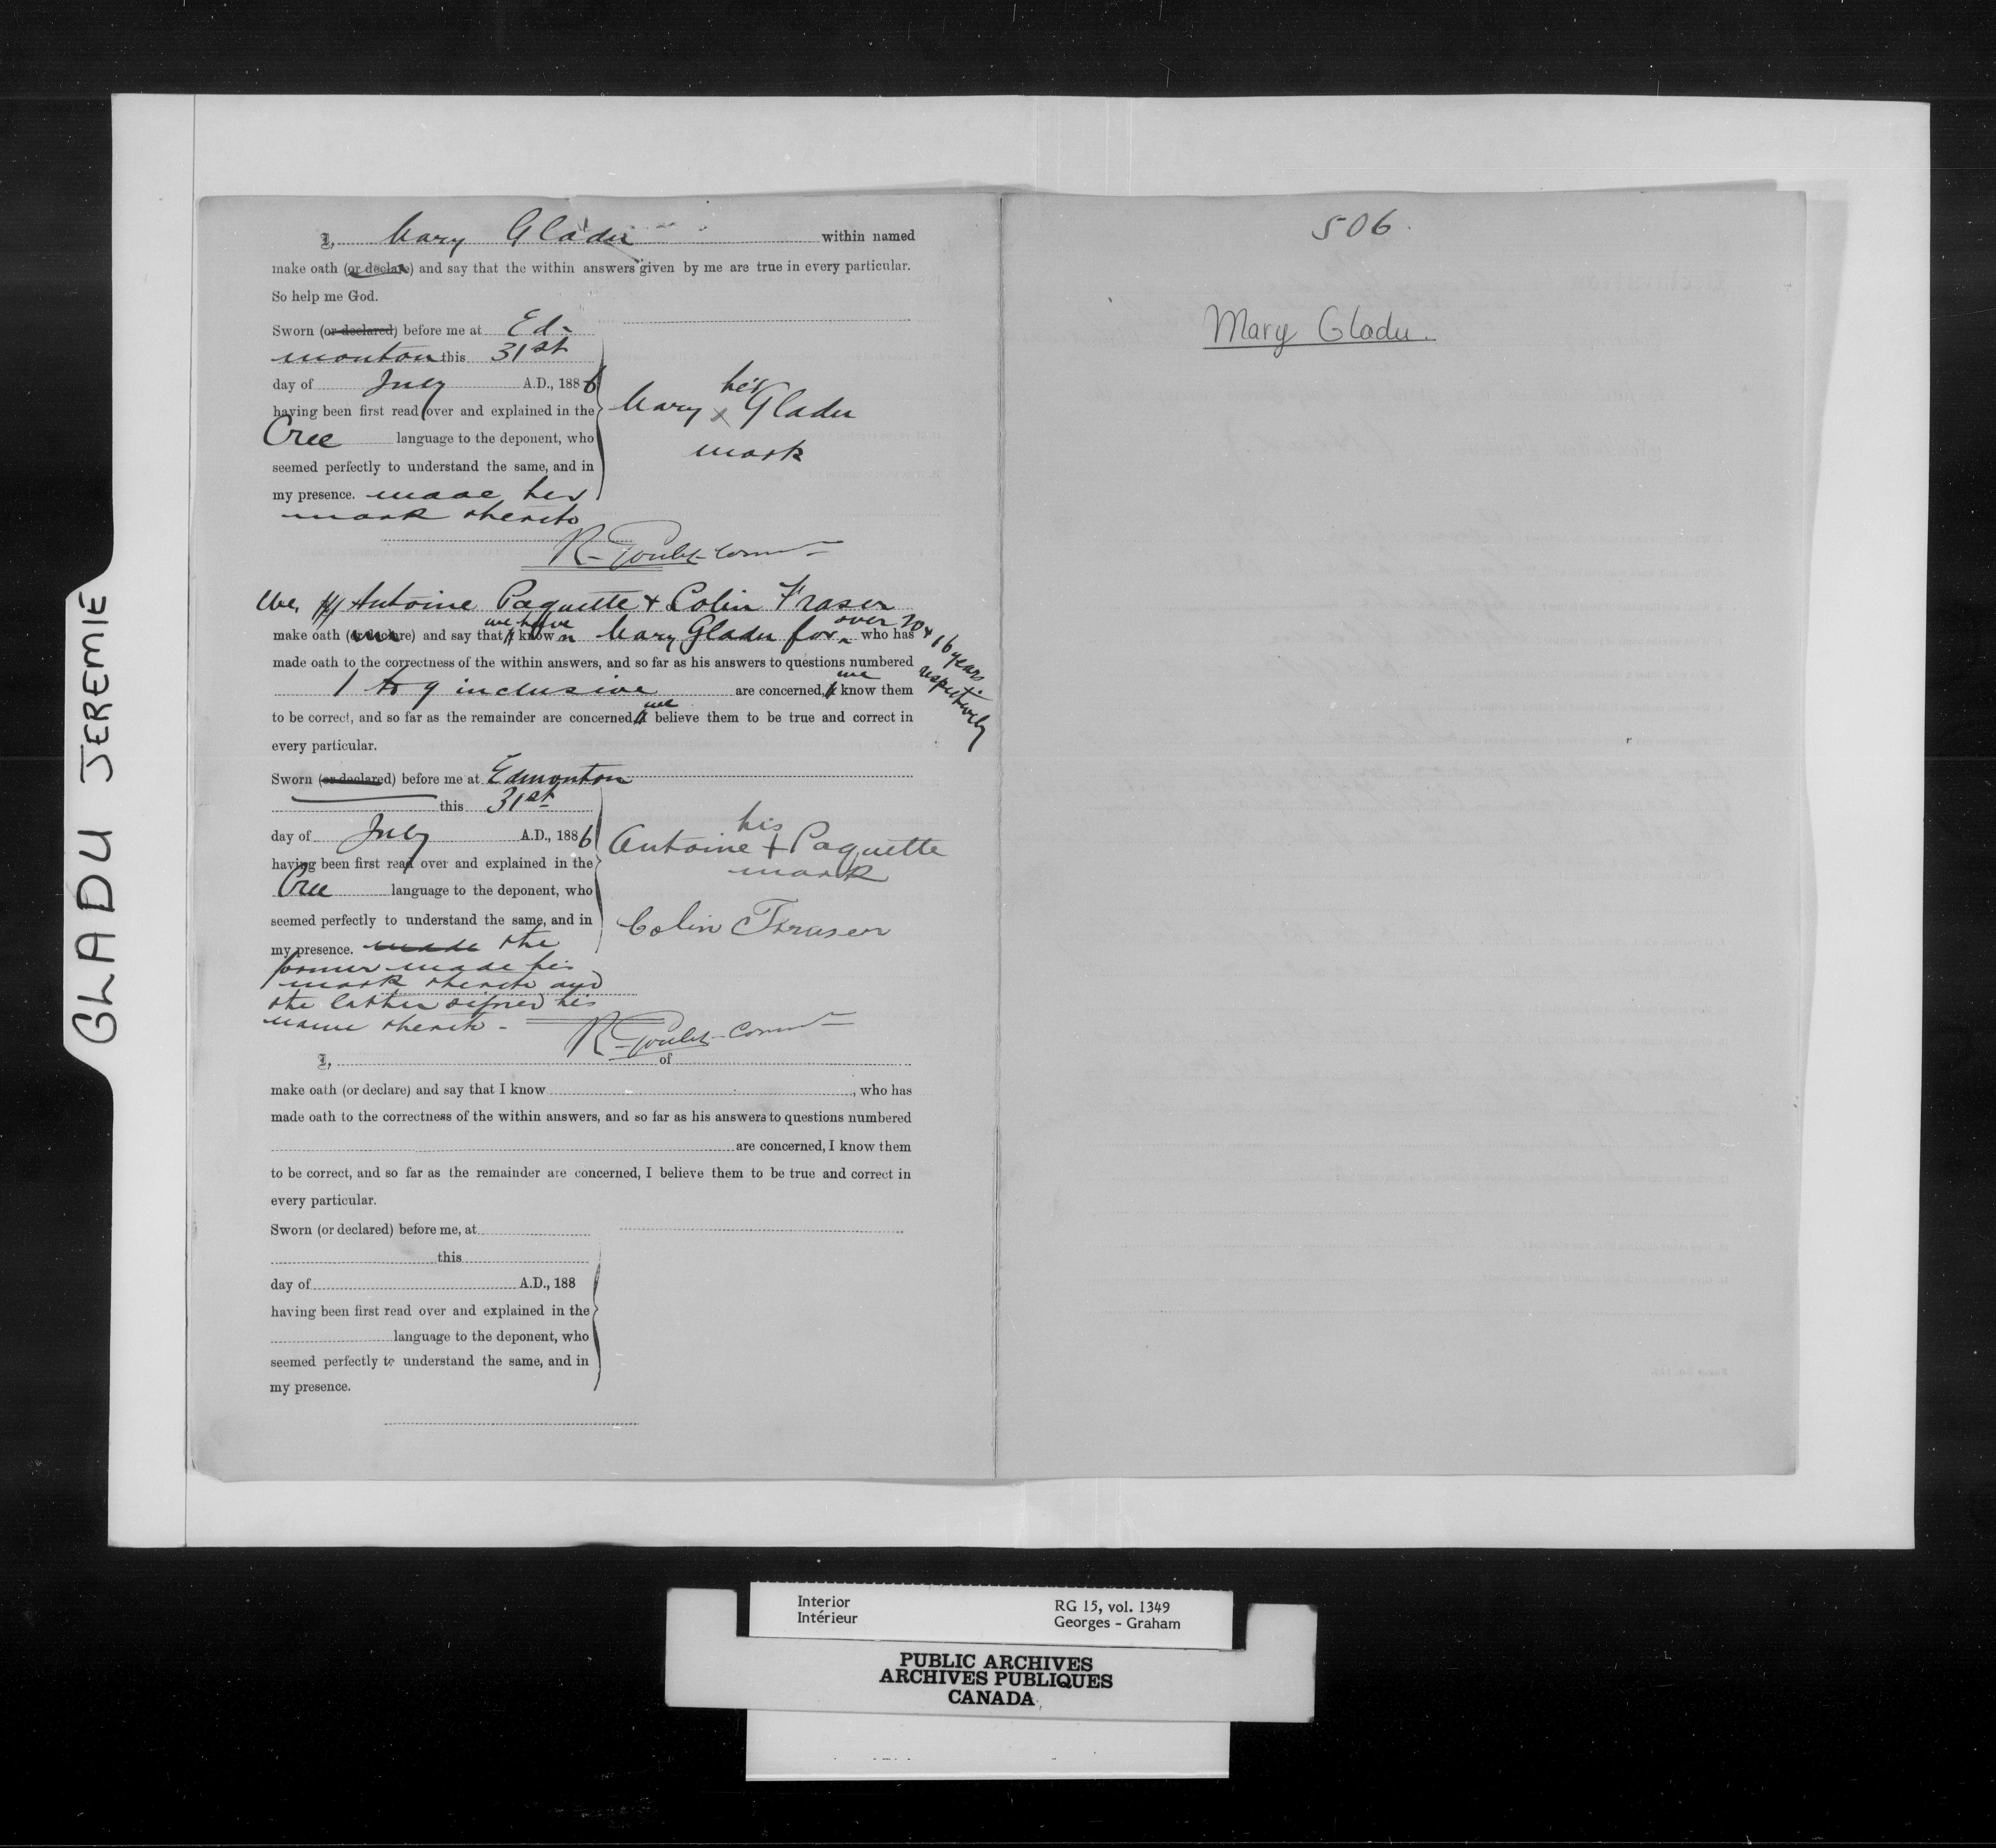 GLADU JEREMIE
I, Mary Gladu within named
make oath (or declare) and say that the within answers given by me are true in every particular.
So help me God.
Sworn (or declared) before me at Ed-
monton this 31st
day of July A.D., 1886
having been first read over and explained in the
Cree language to the deponent, who
seemed perfectly to understand the same, and in
my presence. made her
mark thereto
her
Mary x Gladu
mark
R. Goulet Comr
We, Antoine Paquette & Colin Fraser
make oath (or declare) and say that we have known Mary Gladu for over 20 & 16 years respectively who has
made oath to the correctness of the within answers, and so far as his answers to questions numbered
1 to 9 inclusive are concerned, we know them
to be correct, and so far as the remainder are concerned, we believe them to be true and correct in
every particular.
Sworn (or declared) before me at Edmonton
this 31st
day of July A.D., 1886
having been first read over and explained in the
Cree language to the deponent, who
seemed perfectly to understand the same, and in
my presence. made the
former made his
mark thereto and
the latter signed his
name thereto -
his
Antoine + Paquette
mark
Colin Fraser
R. Goulet Comr
I, of
make oath (or declare) and say that I know , who has
made oath to the correctness of the within answers, and so far as his answers to questions numbered
are concerned, I know them
to be correct, and so far as the remainder are concerned, I believe them to be true and correct in
every particular.
Sworn (or declared) before me, at
this
day of A.D., 188
having been first read over and explained in the
language to the deponent, who
seemed perfectly to understand the same, and in
my presence.
506.
Mary Gladu.
Interior
Intérieur
RG 15, vol. 1349
Georges - Graham
PUBLIC ARCHIVES
ARCHIVES PUBLIQUES
CANADA